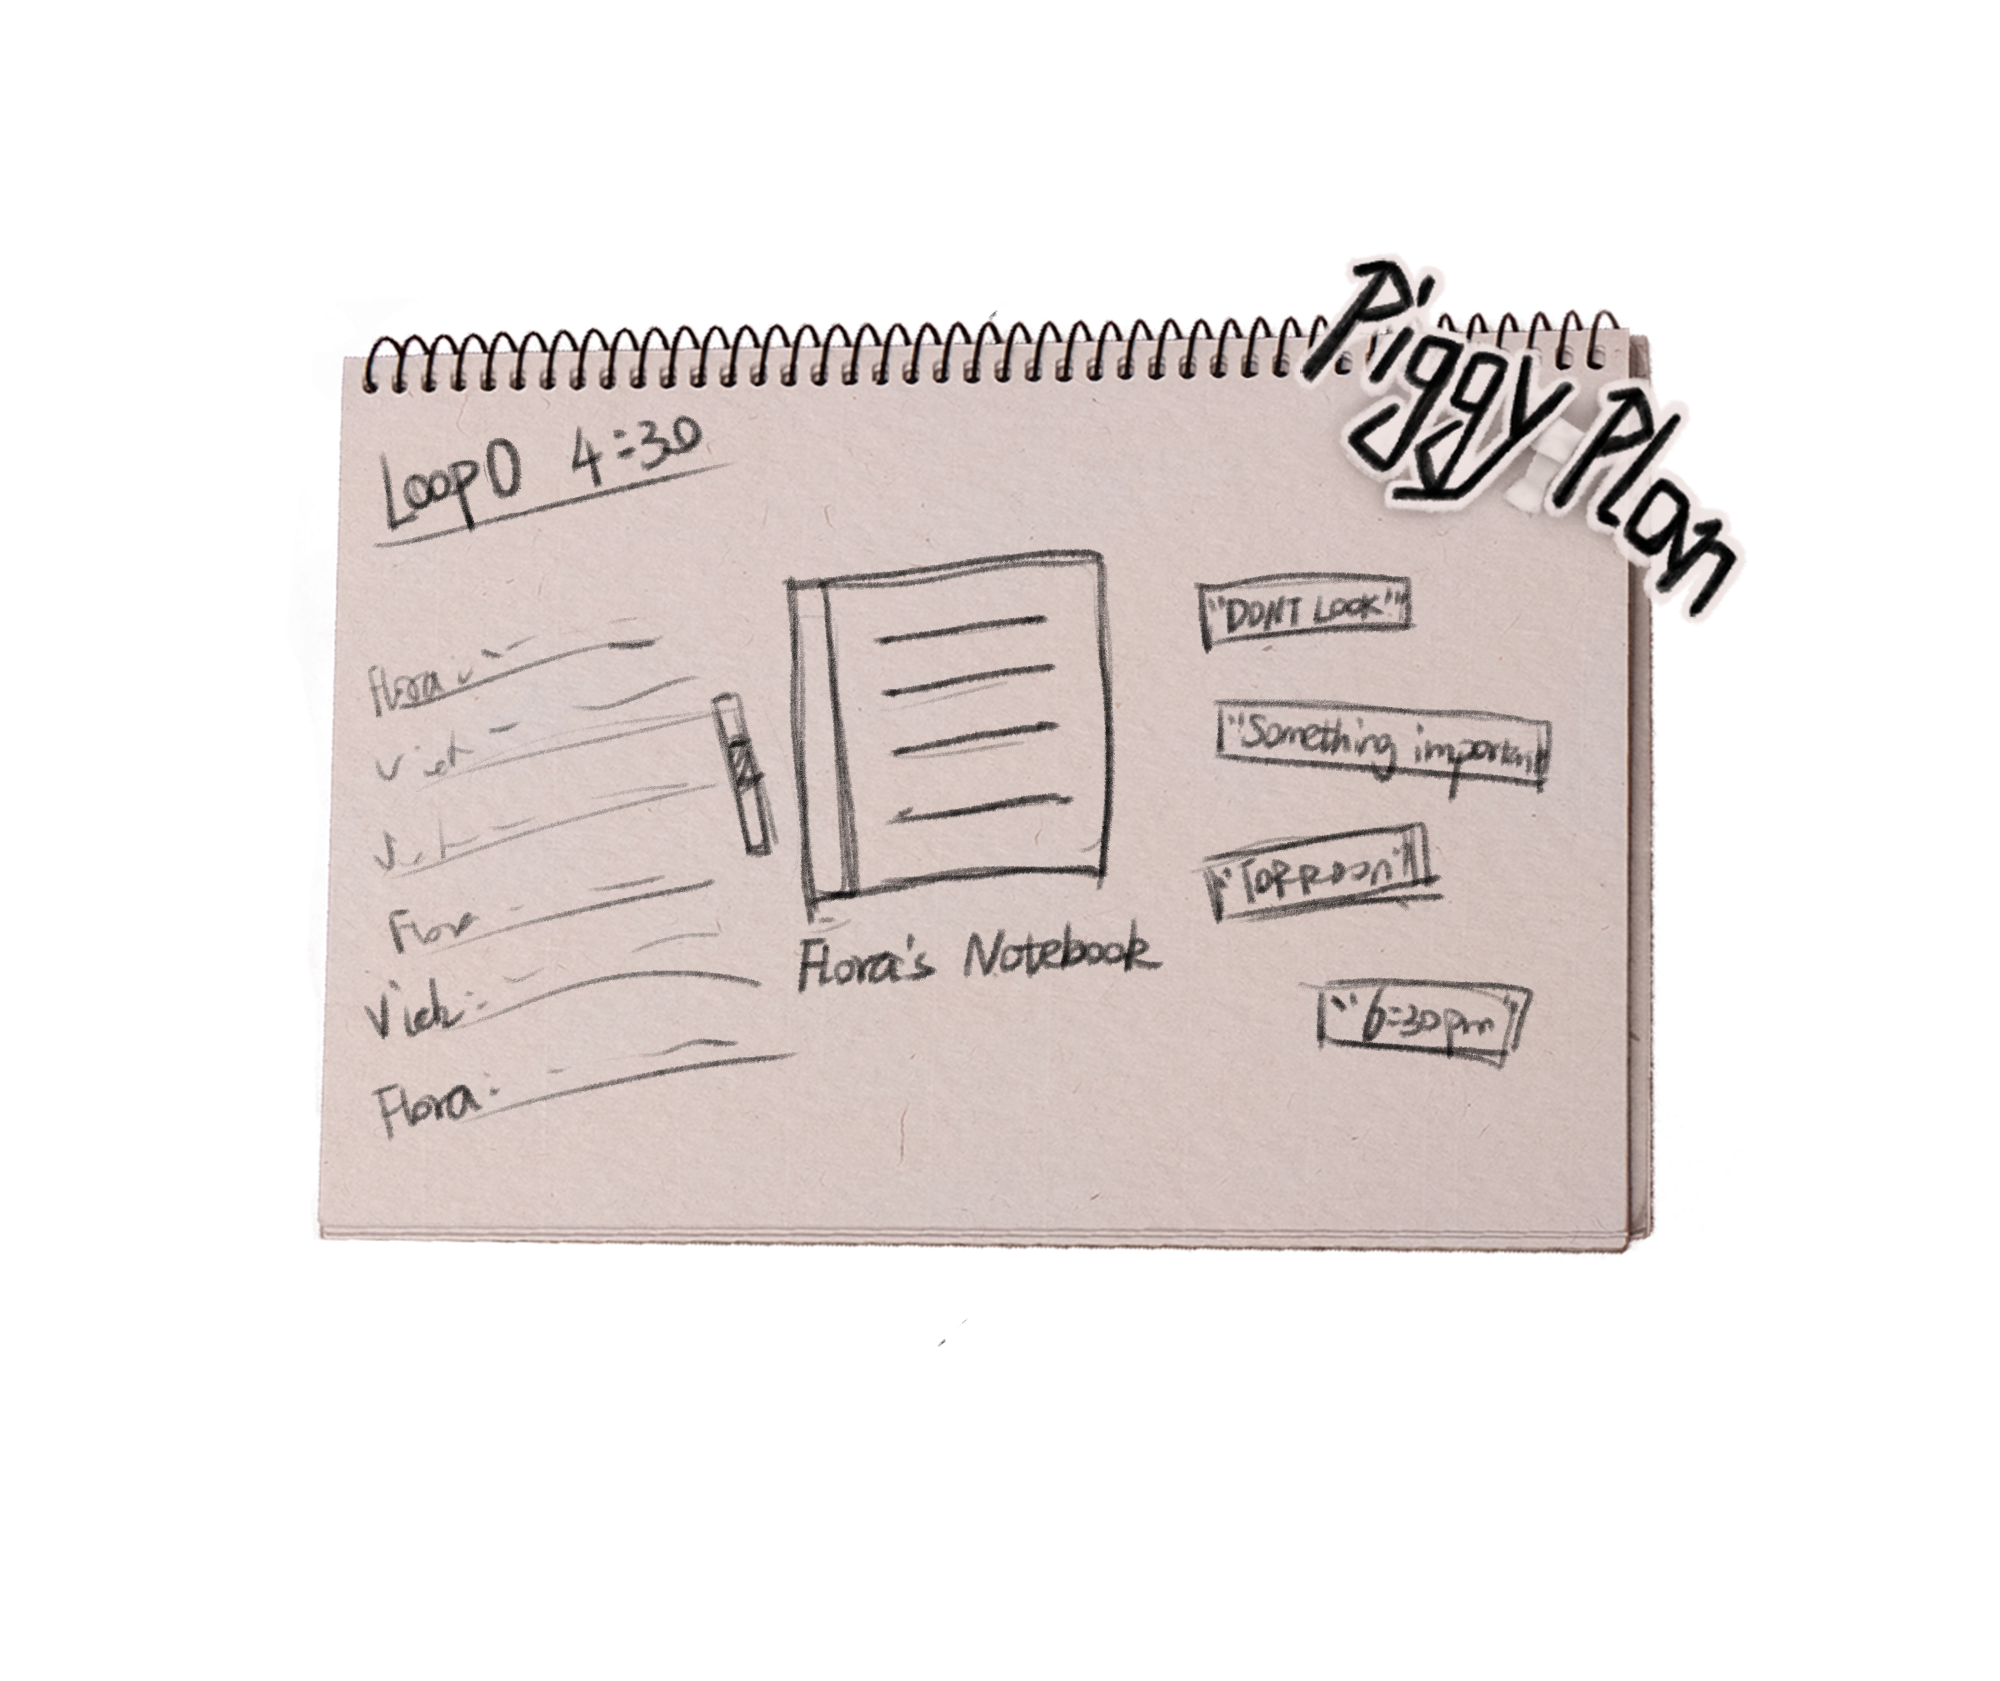 Piggy Plan
Loop 0 4:30
Flora:
Vick
Vick
Flora
Vick:
Flora:
Flora's Notebook
"DONT LOOK"
"Something important
"6:30pm"